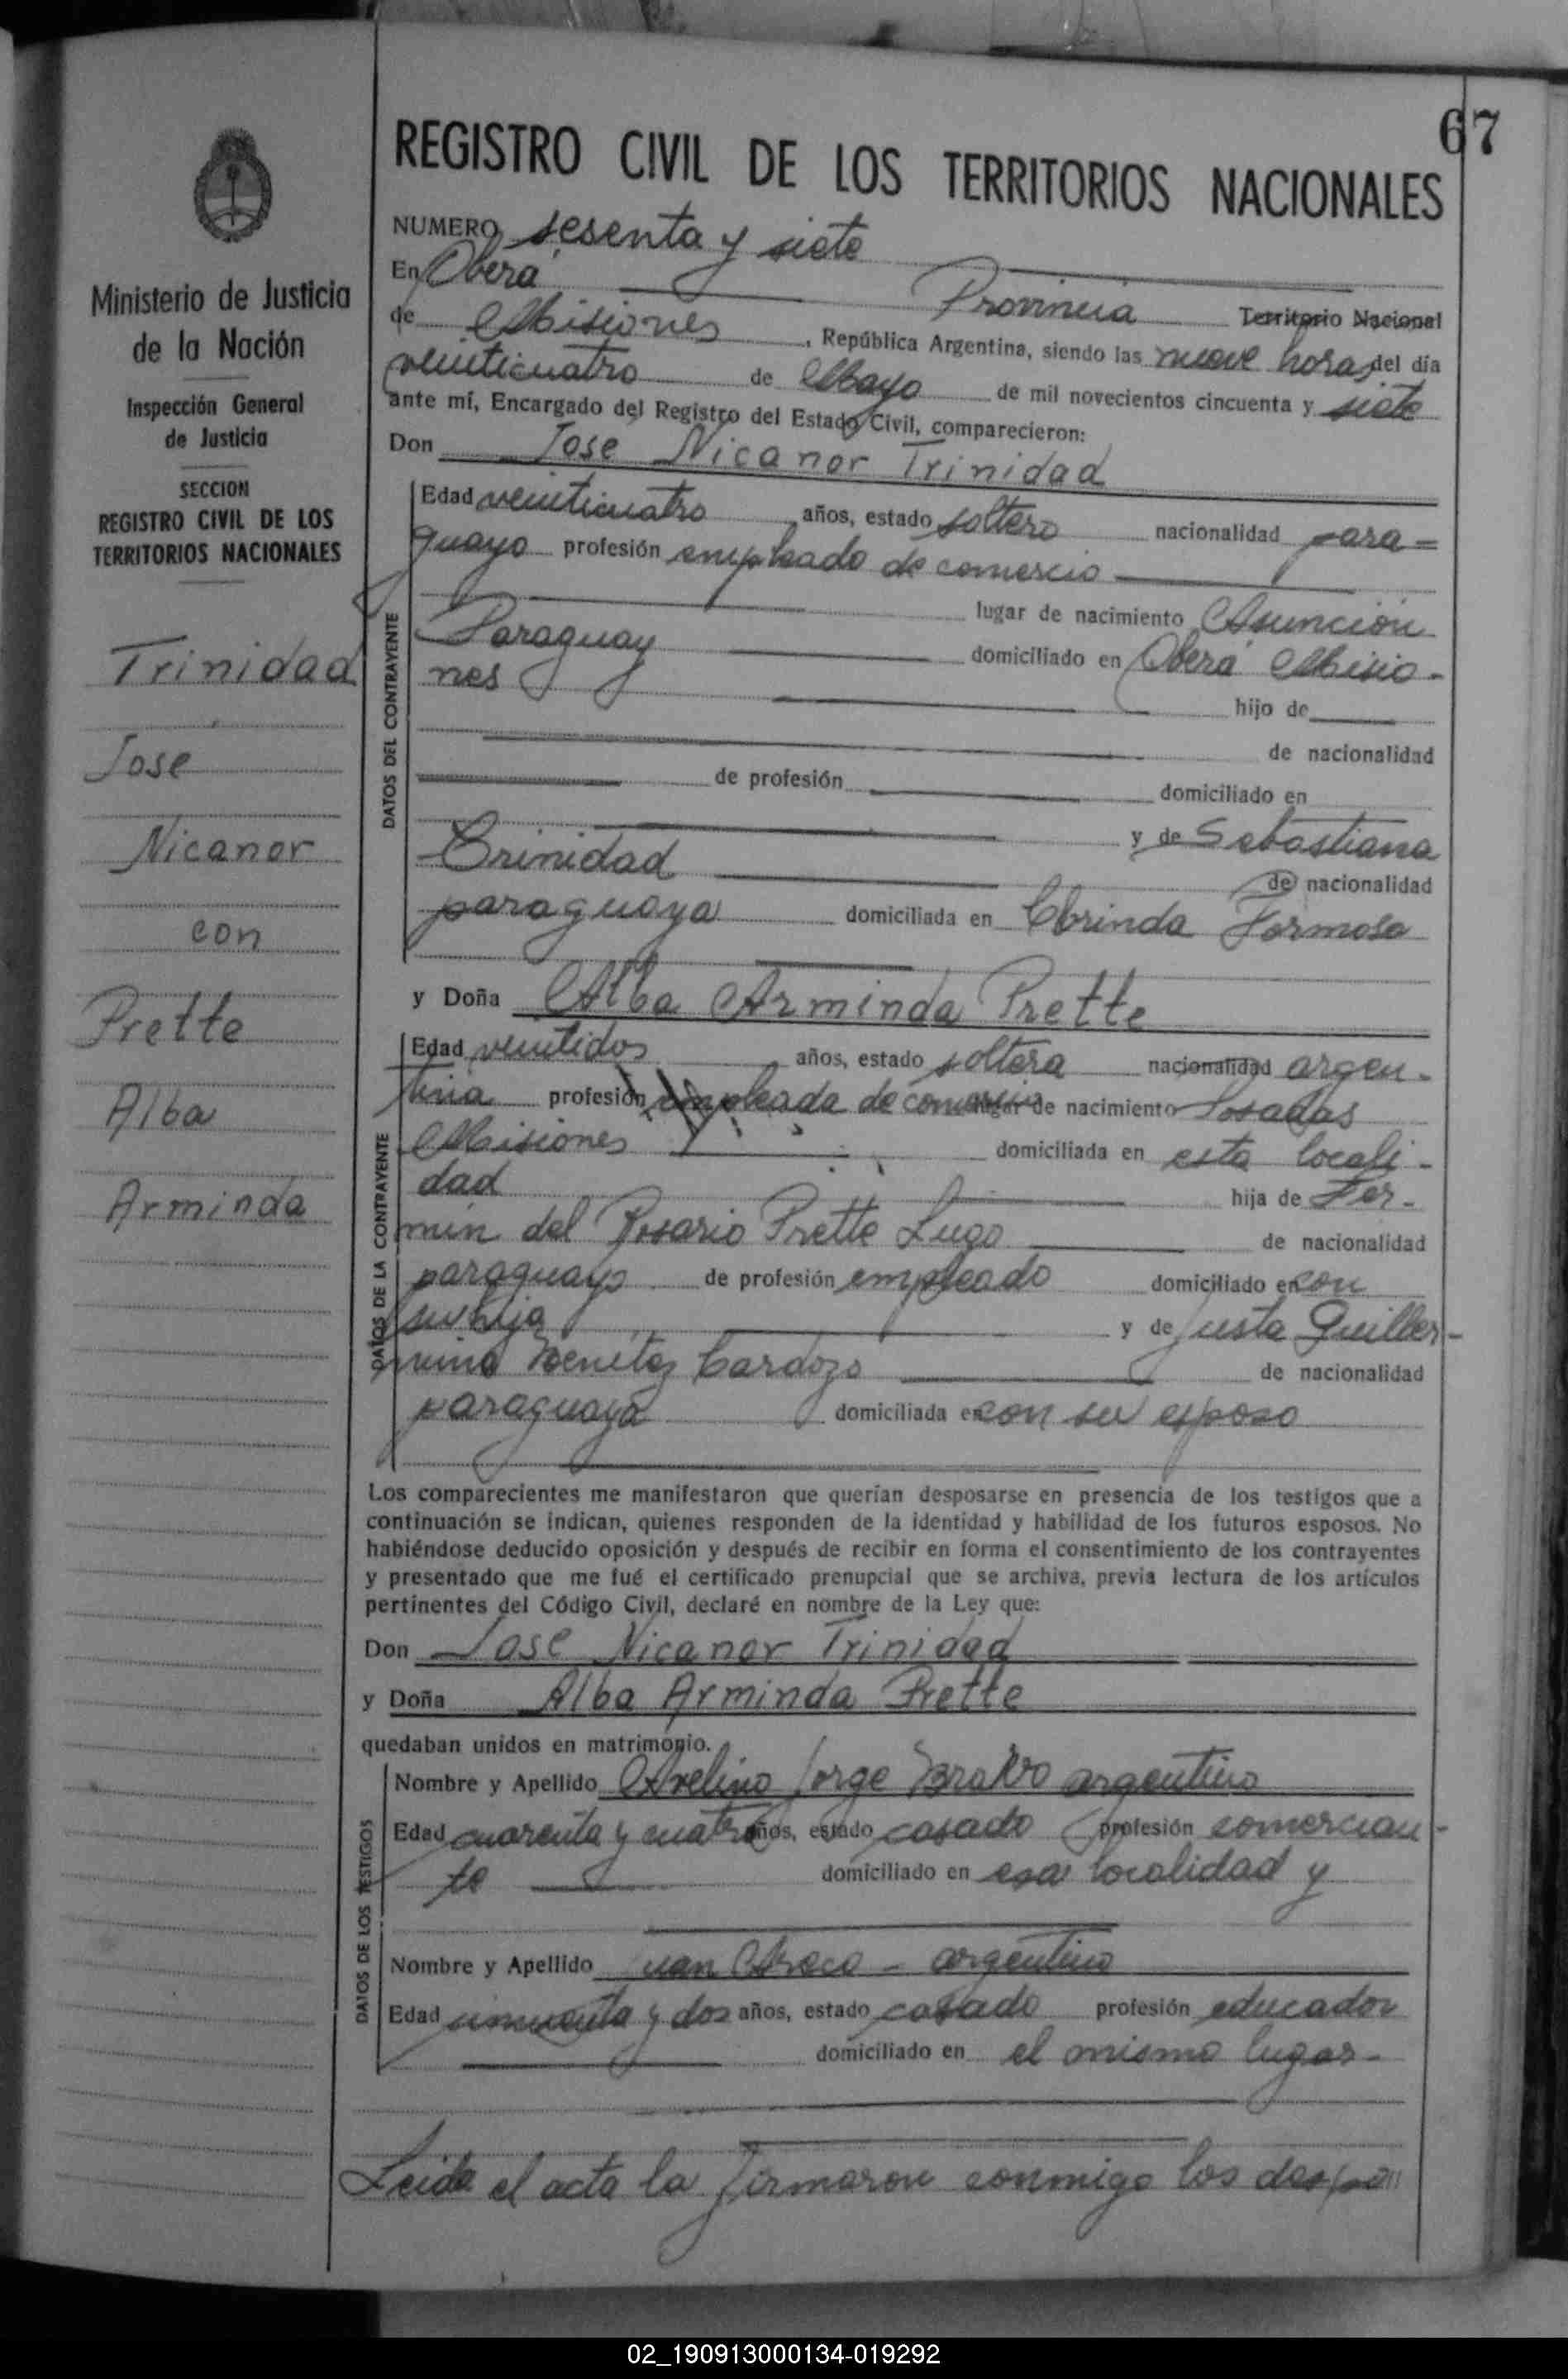 67
REGISTRO CIVIL DE LOS TERRITORIOS NACIONALES
Ministerio de Justicia
de la Nación
Inspección General
de Justicia
SECCION
REGISTRO CIVIL DE LOS
TERRITORIOS NACIONALES
Trinidad
Jose
Nicanor
con
Prette
Alba
Arminda
NUMERO sesenta y siete
En Oberá Provincia Territorio Nacional
de Misiones , República Argentina, siendo las nueve horas del día
veinticuatro de Mayo de mil novecientos cincuenta y siete
ante mí, Encargado del Registro del Estado Civil, comparecieron:
Don José Nicanor Trinidad
DATOS DEL CONTRAYENTE
Edad veinticuatro años, estado soltero nacionalidad para=
guayo profesión empleado de comercio
lugar de nacimiento Asunción
Paraguay domiciliado en Oberá Misio-
nes hijo de
de nacionalidad
de profesión domiciliado en
y de Sebastiana
Trinidad de nacionalidad
paraguaya domiciliada en Clorinda Formosa
y Doña Alba Arminda Prette
DATOS DE LA CONTRAYENTE
Edad veintidos años, estado soltera nacionalidad argen-
tina profesión empleada de comercio lugar de nacimiento Posadas
Misiones domiciliada en esta locali-
dad hija de Fer-
min del Rosario Prette Lugo de nacionalidad
paraguayo de profesión empleado domiciliado en con
su hija y de Justa Guiller-
mina Benitez Cardozo de nacionalidad
paraguaya domiciliada en con su esposo
Los comparecientes me manifestaron que querían desposarse en presencia de los testigos que a
continuación se indican, quienes responden de la identidad y habilidad de los futuros esposos. No
habiéndose deducido oposición y después de recibir en forma el consentimiento de los contrayentes
y presentado que me fué el certificado prenupcial que se archiva, previa lectura de los artículos
pertinentes del Código Civil, declaré en nombre de la Ley que:
Don Jose Nicanor Trinidad
y Doña Alba Arminda Prette
quedaban unidos en matrimonio.
DATOS DE LOS TESTIGOS
Nombre y Apellido Avelino Jorge argentino
Edad cuarenta y cuatro años, estado casado profesión comercian-
te domiciliado en esa localidad y
Nombre y Apellido Juan - argentino
Edad cincuenta y dos años, estado casado profesión educador
domiciliado en el mismo lugar-
Leida el acta la firmaron conmigo los
02_190913000134-019292